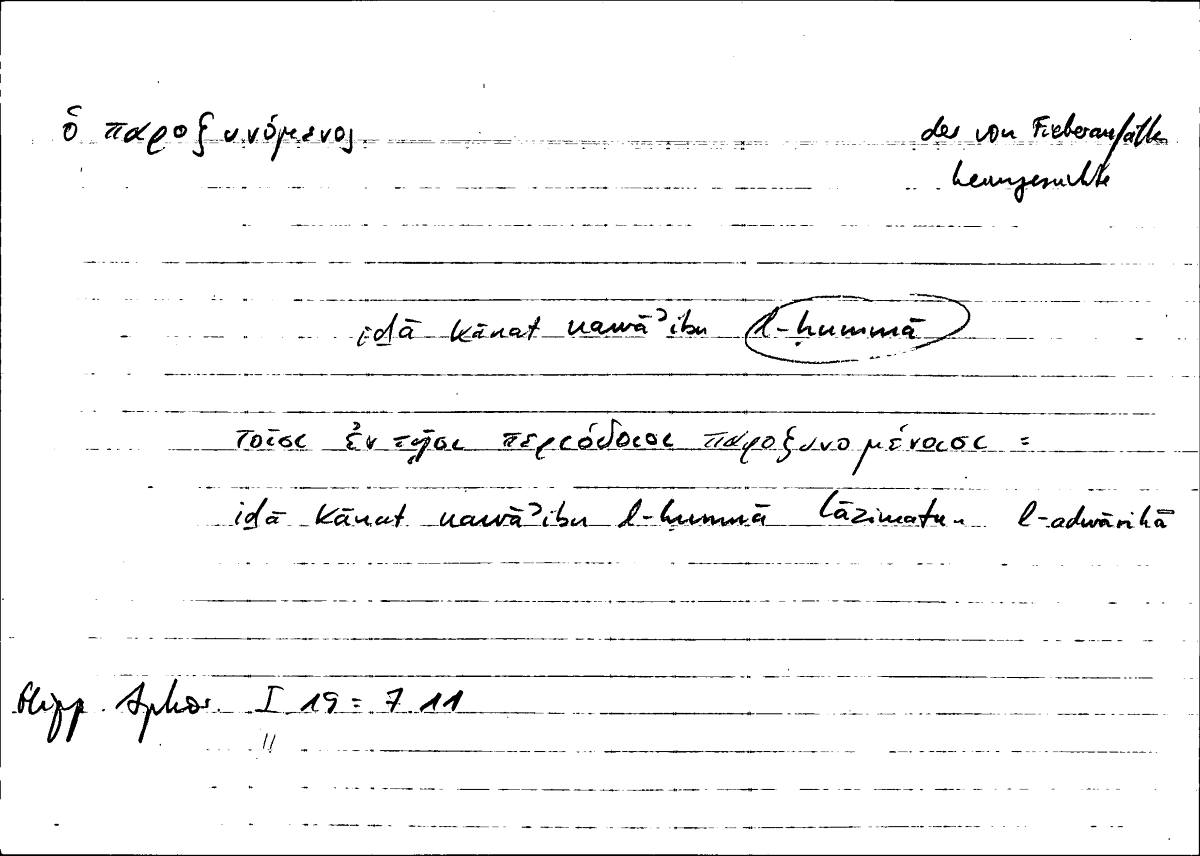 ὁ παροξυνόμενος der von Fieberanfällen
heimgesuchte
iḏā kānat nawāʾibu l-ḥummā
τοῖσι ἐν τῇσι περιόδοισι παροξυνομένοισι =
iḏā kānat nawāʾibu l-ḥummā lāzimatun l-adwārihā
Hipp. Aphor. I 19 = 7 11
"